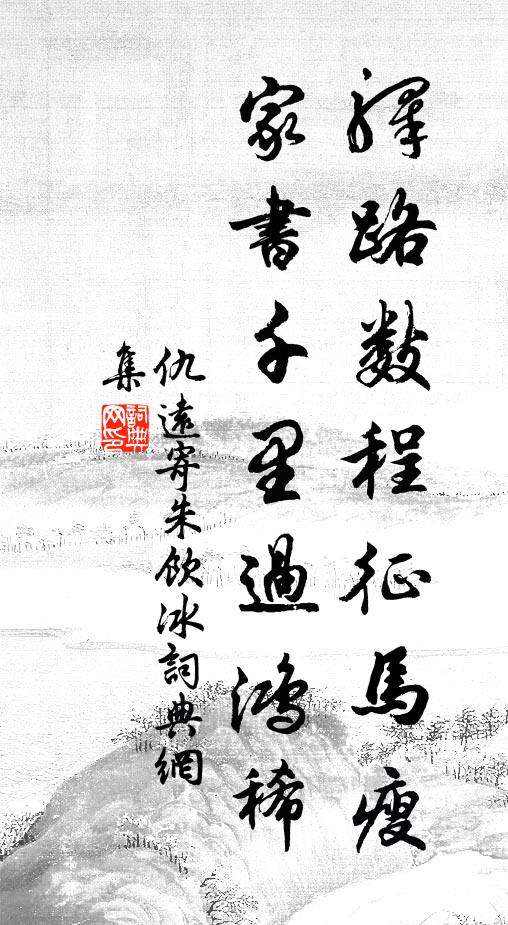 驛路數程征馬瘦
家書千里過鴻稀
仇遠寄朱飲冰詞典網
集
詞典網印